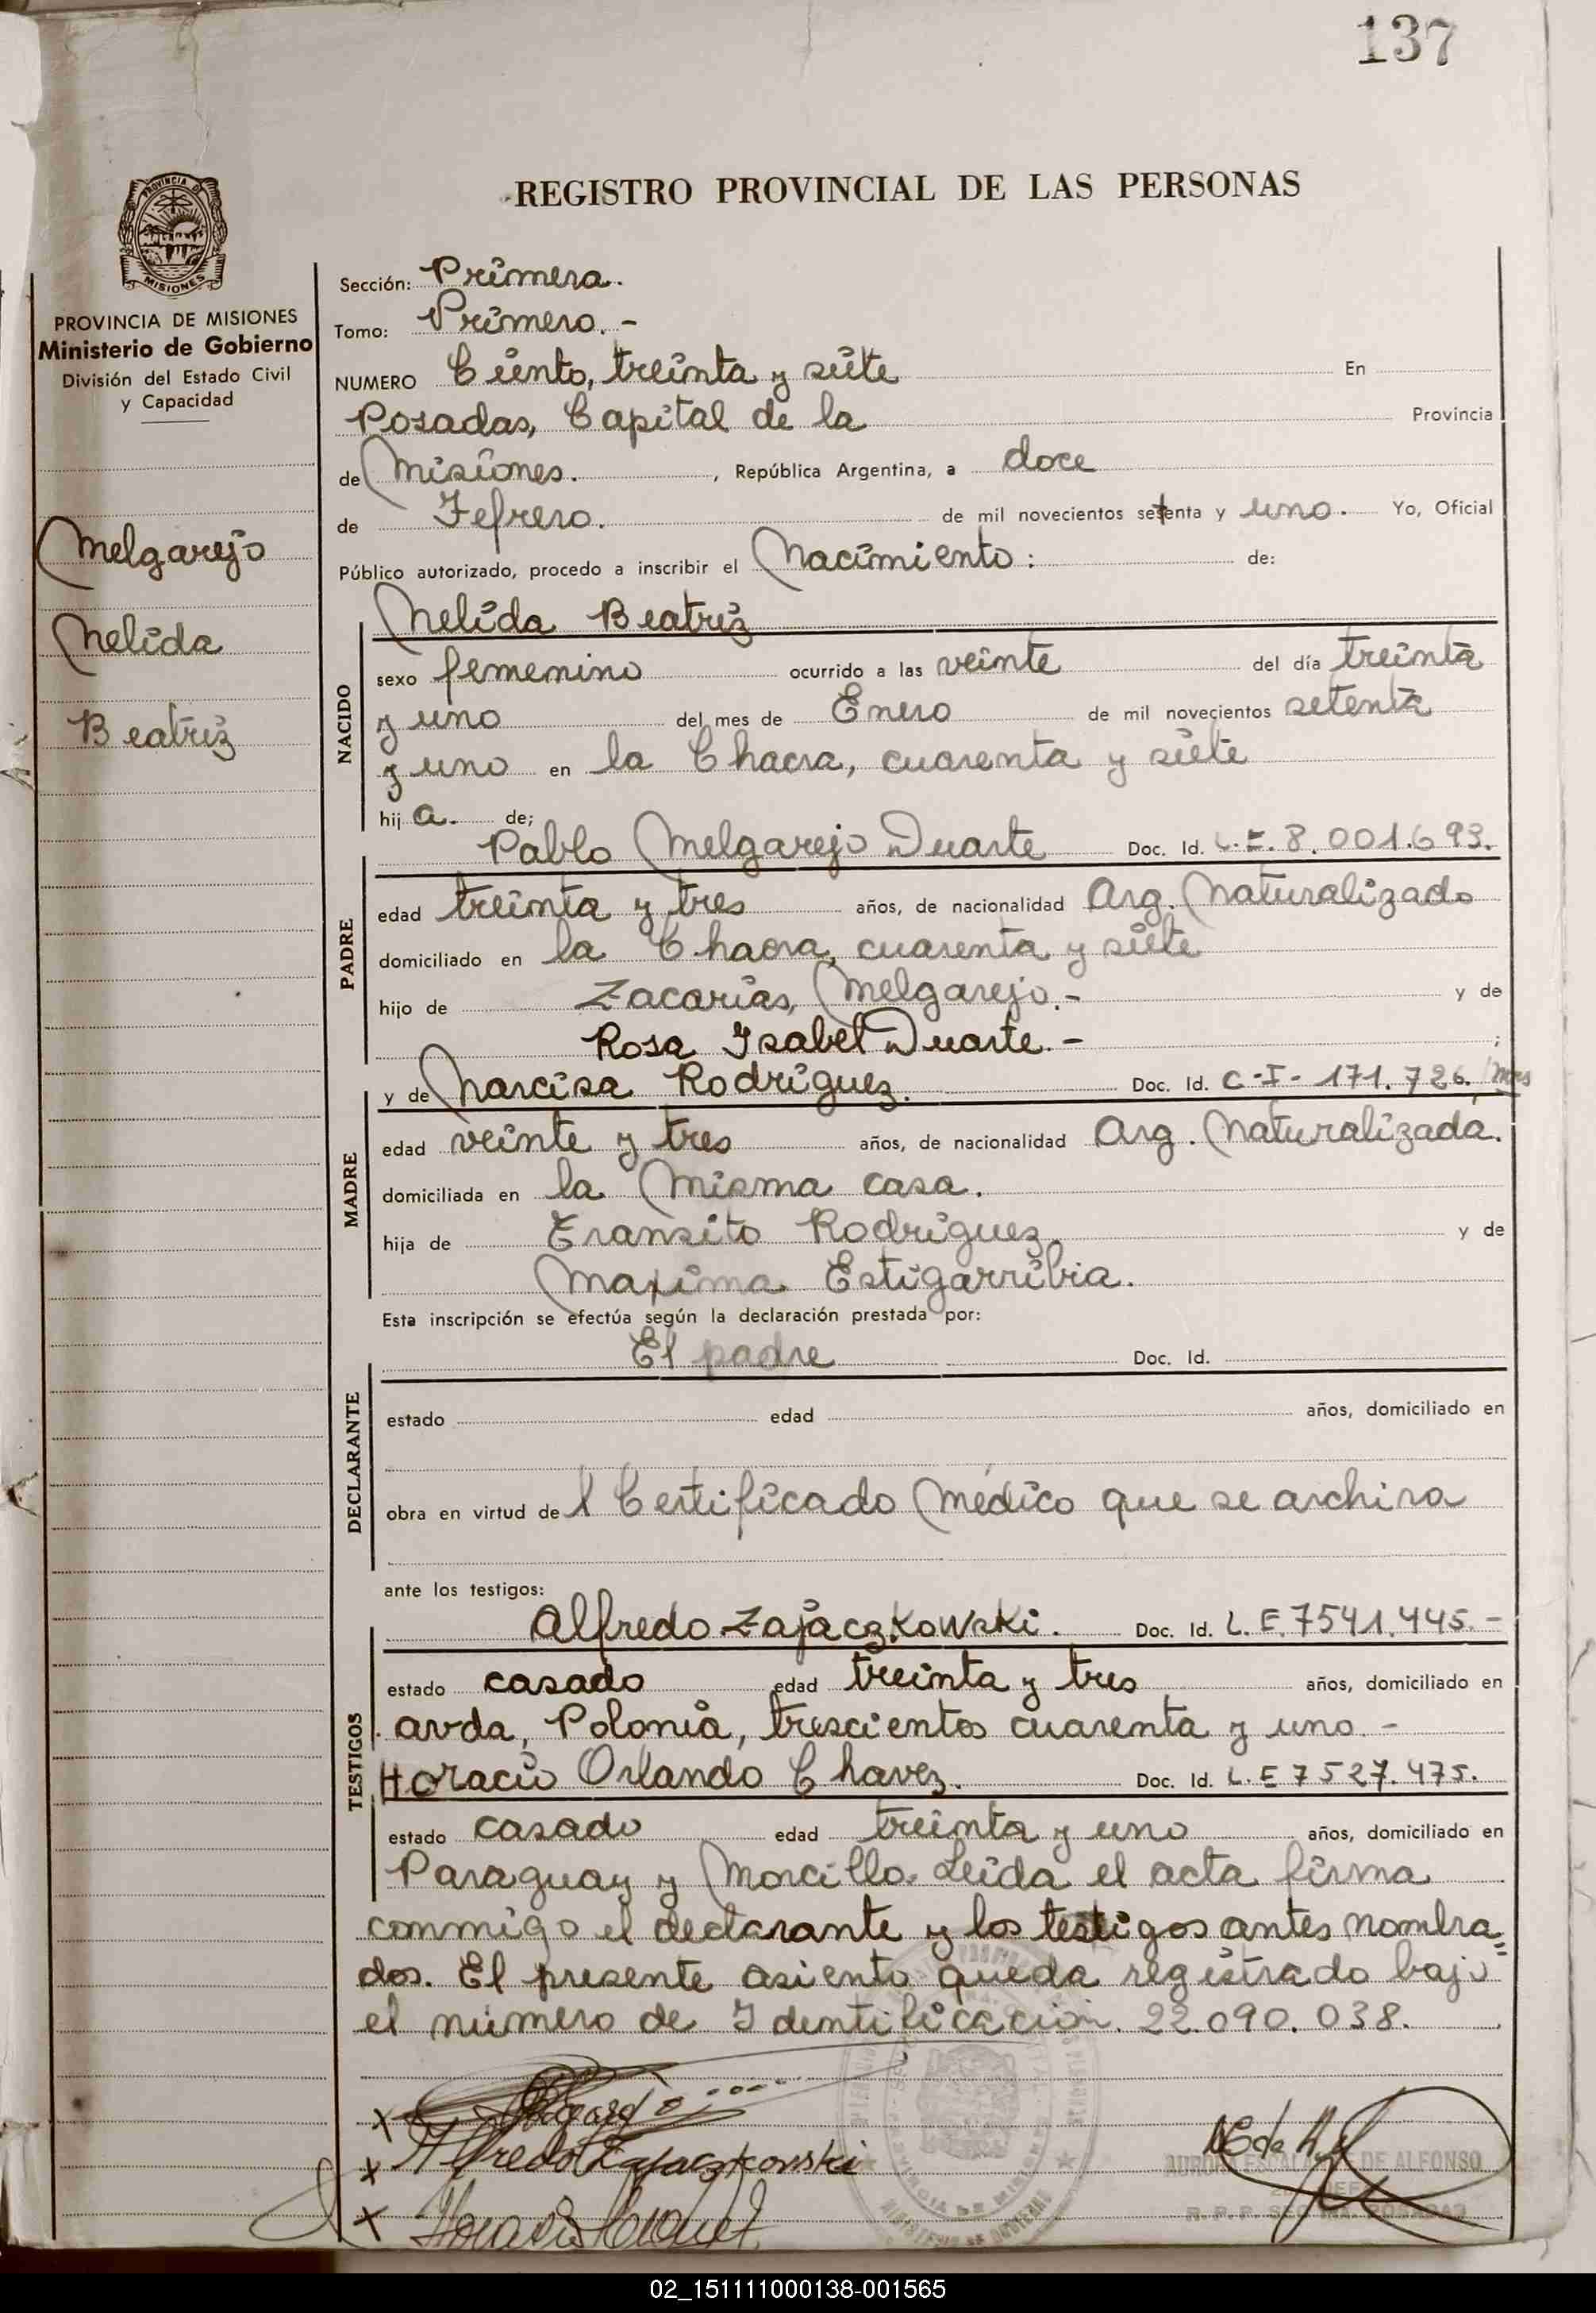 137
PROVINCIA DE
MISIONES
REGISTRO PROVINCIAL DE LAS PERSONAS
PROVINCIA DE MISIONES
Ministerio de Gobierno
División del Estado Civil
y Capacidad
Melgarejo
Nelida
Beatriz
Sección: Primera.
Tomo: Primero.-
NUMERO Ciento, treinta y siete En
Posadas, Capital de la Provincia
de Misiones. , República Argentina, a doce
de Febrero. de mil novecientos setenta y uno. Yo, Oficial
Público autorizado, procedo a inscribir el Nacimiento: de:
Nelida Beatriz
NACIDO
sexo femenino ocurrido a las veinte del día treinta
y uno del mes de Enero de mil novecientos setenta
y uno en la Chacra, cuarenta y siete
hij a. de;
Pablo Melgarejo Duarte Doc. Id. L.E. 8.001.693.
PADRE
edad treinta y tres años, de nacionalidad Arg. Naturalizado
domiciliado en la Chacra, cuarenta y siete
hijo de Zacarías, Melgarejo.- y de
Rosa Isabel Duarte.- ;
y de Narcisa Rodríguez. Doc. Id. C-I- 171.726. Mnes
MADRE
edad veinte y tres años, de nacionalidad Arg. Naturalizada.
domiciliada en la Misma casa.
hija de Transito Rodríguez. y de
Maxima Estigarribia.
Esta inscripción se efectúa según la declaración prestada por:
El padre Doc. Id.
DECLARANTE
estado edad años, domiciliado en
obra en virtud de l Certificado Médico que se archiva
ante los testigos:
Alfredo Zajaczkowski. Doc. Id. L.E. 7541.445.-
TESTIGOS
estado casado edad treinta y tres años, domiciliado en
avda, Polonia, trescientos cuarenta y uno.-
Horacio Orlando Chavez. Doc. Id. L.E 7527.475.
estado casado edad treinta y uno años, domiciliado en
Paraguay y Morcillo. Leida el acta firma
conmigo el declarante y los testigos antes nombra=
dos. El presente asiento queda registrado bajo
el número de Identificación. 22.090.038.
x
x Alfredo Zajaczkowski
x
DE ALFONSO
02_151111000138-001565